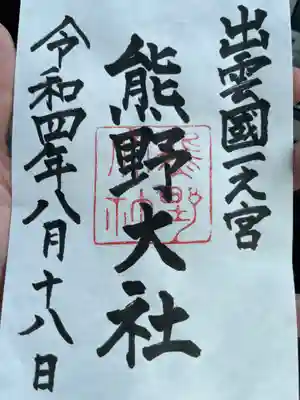 出雲國一之宮
熊野大社
令和四年八月十八日